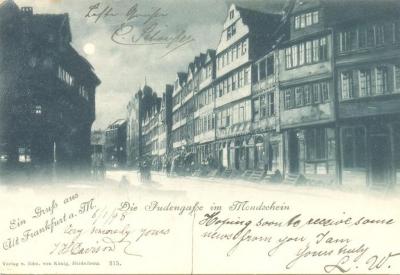 Beste Grüsse
Ein Gruß aus
Alt Frankfurt a. M.
Die Judengaße im Mondschein
Very sincerely yours
Hoping soon to receive some
news from you I am
Yours truly
L. W.
Verlag v. Edm. von König, Heidelberg. 315.